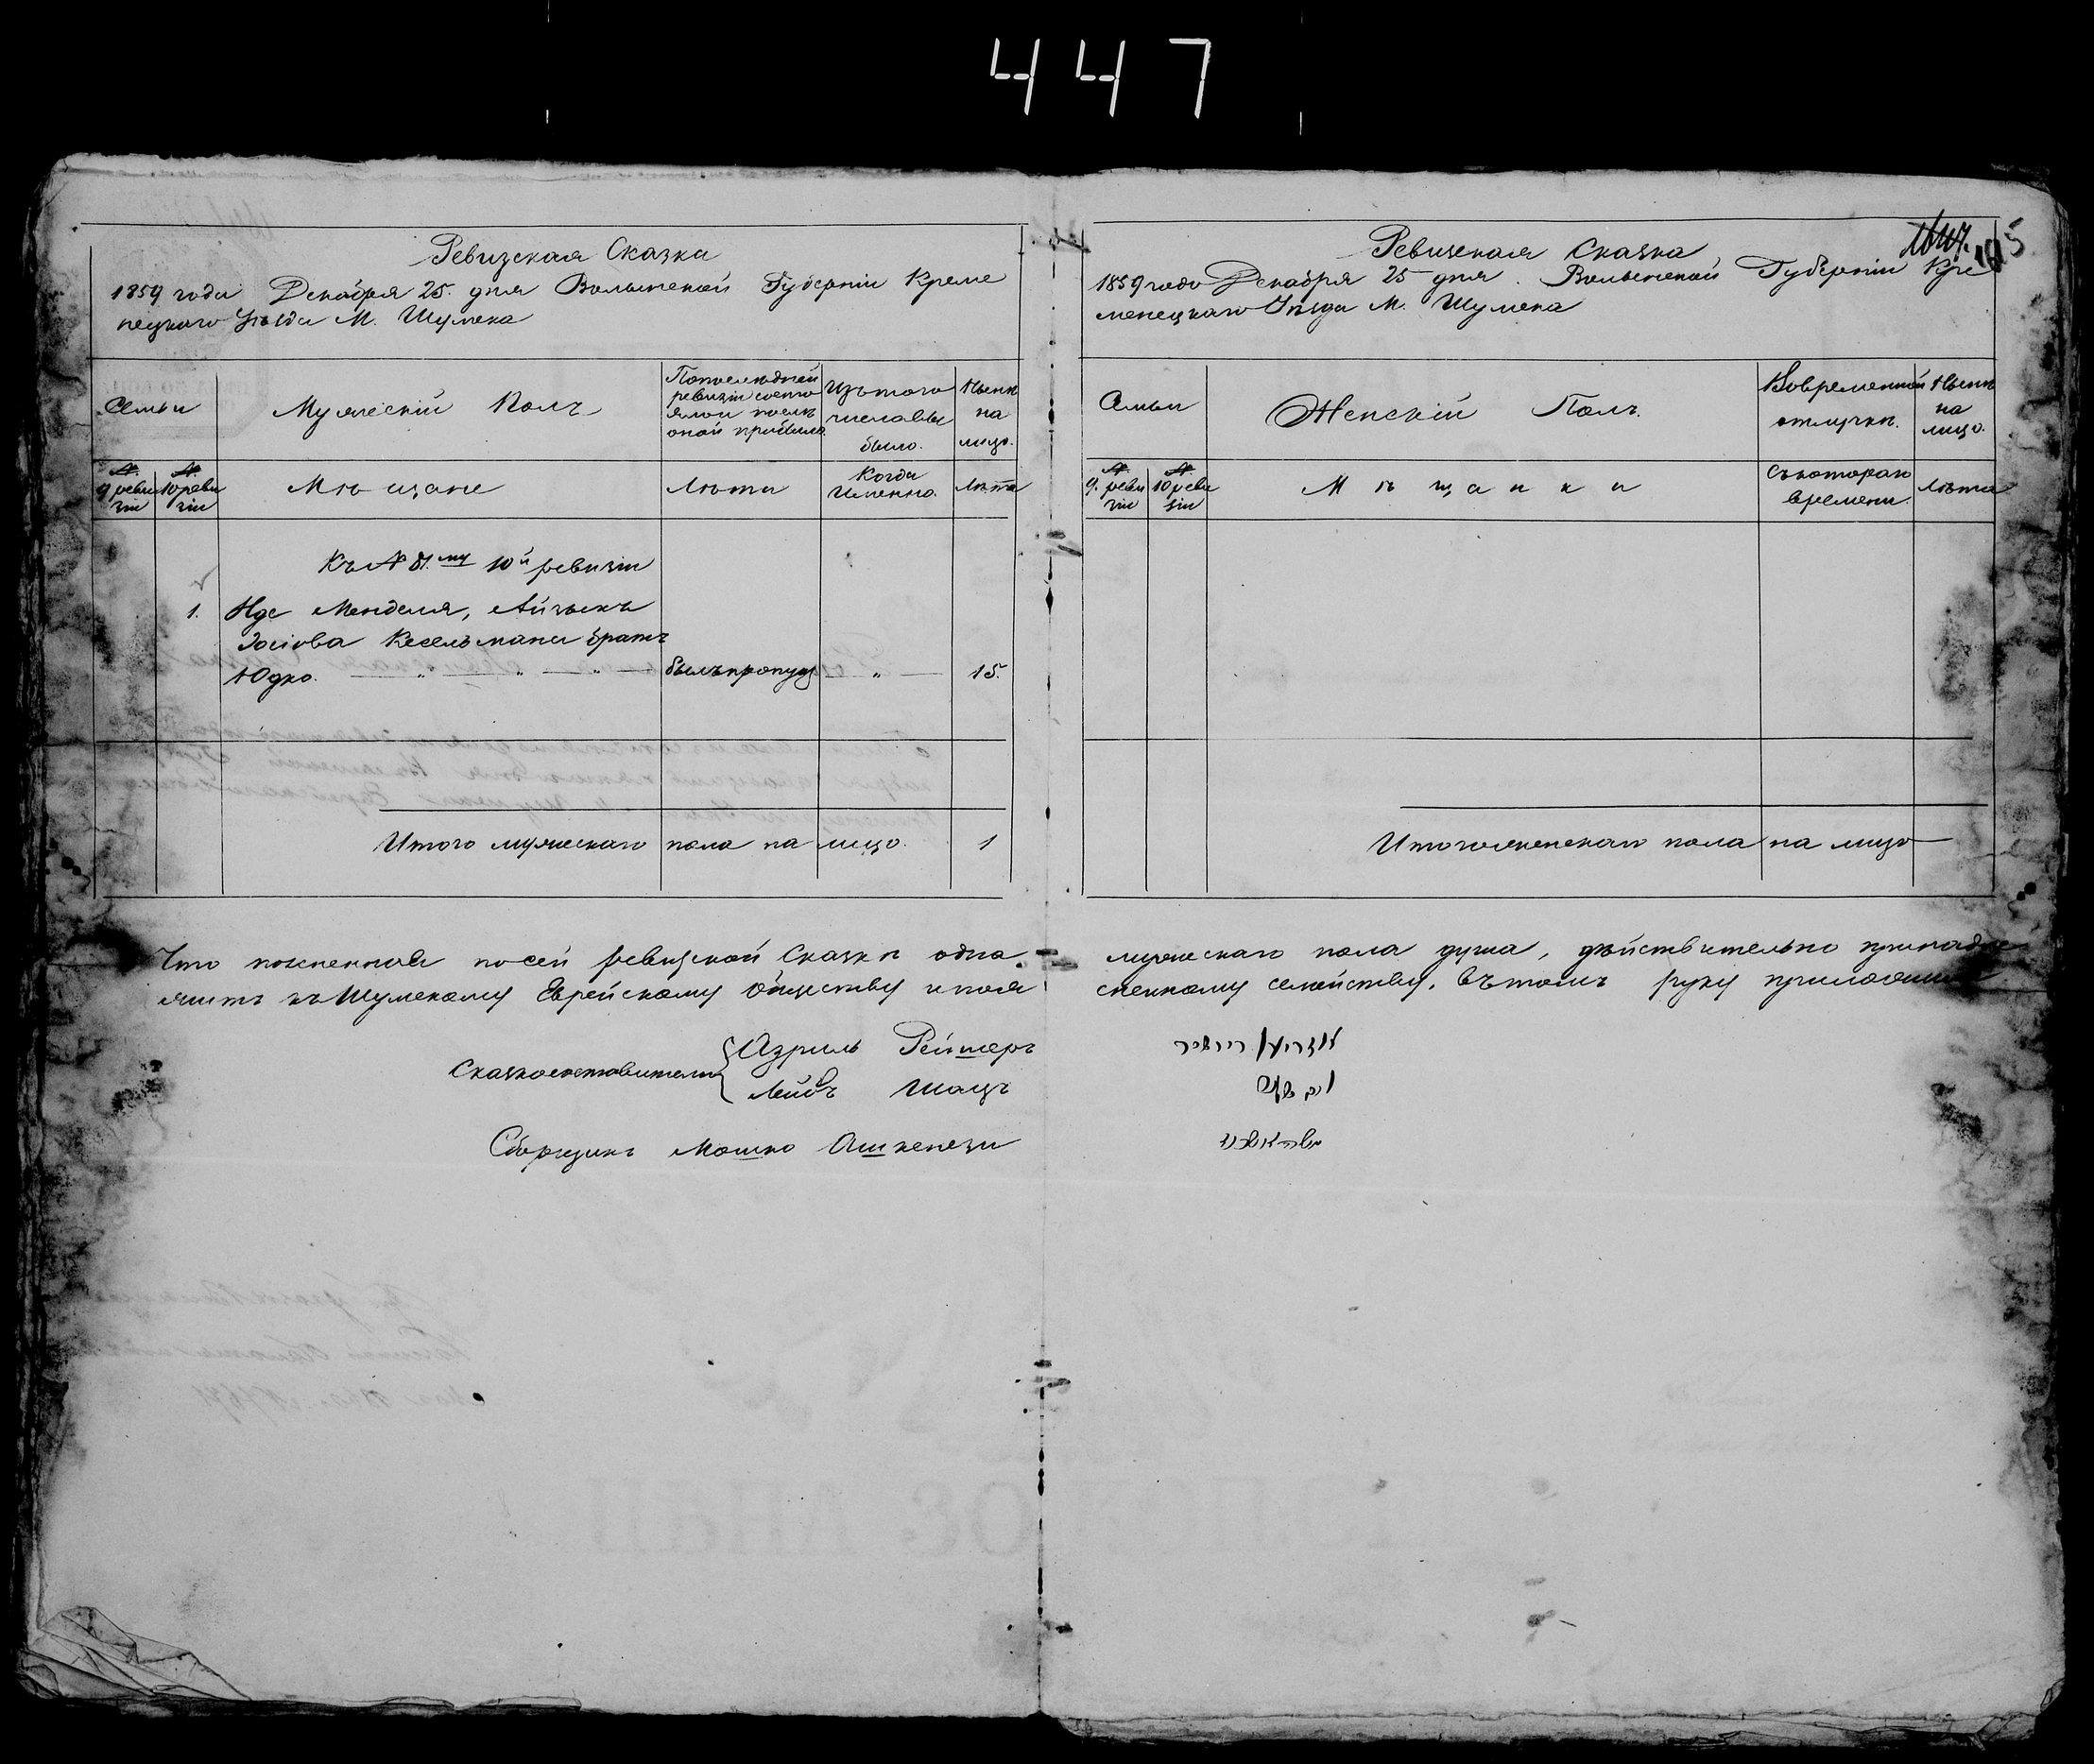 447
Ревизская Сказка
1859 года Декабря 25. дня Волынской Губерніи Креме
нецкаго Уѣзда М. Шумска
Семьи
Мужескій Полъ
По последней
ревизіи состо
яло и послѣ
оной прибыло.
Изъ того
числа вы
было.
Нынѣ
на
лицо.
№.
9 реви
зіи
№.
10 реви
зіи
Мѣщане
Лѣта
Когда
Именно.
Лѣта
Къ № 81.му 10й ревизіи
1. Иде Менделя, Айзыкъ
Іосіова Кесельмана братъ
Юдко. был пропущ " 15.
Итого мужескаго пола на лицо. 1
Ревизская Сказка
1859 года Декабря 25 дня. Волынской Губерніи Кре
менецкаго Уѣзда М. Шумска
Семьи
Женскій Полъ.
Во временной
отлучкѣ.
Нынѣ
на
лицо.
№.
9. реви
зіи
№.
10 реви
зіи
Мѣщанки
Съ котораго
времени.
Лѣта
Итого женскаго пола на лицо
Что показанная по сей ревизской Сказкѣ одна мужескаго пола душа, дѣйствительно принадле
житъ къ Шумскому Еврейскому Обществу и поя снённому семейству, въ томъ руку приложили
Сказкосоставители
Азриль Рейтеръ
Лейбъ Шацъ
Сборщикъ Мошко Ашкенези